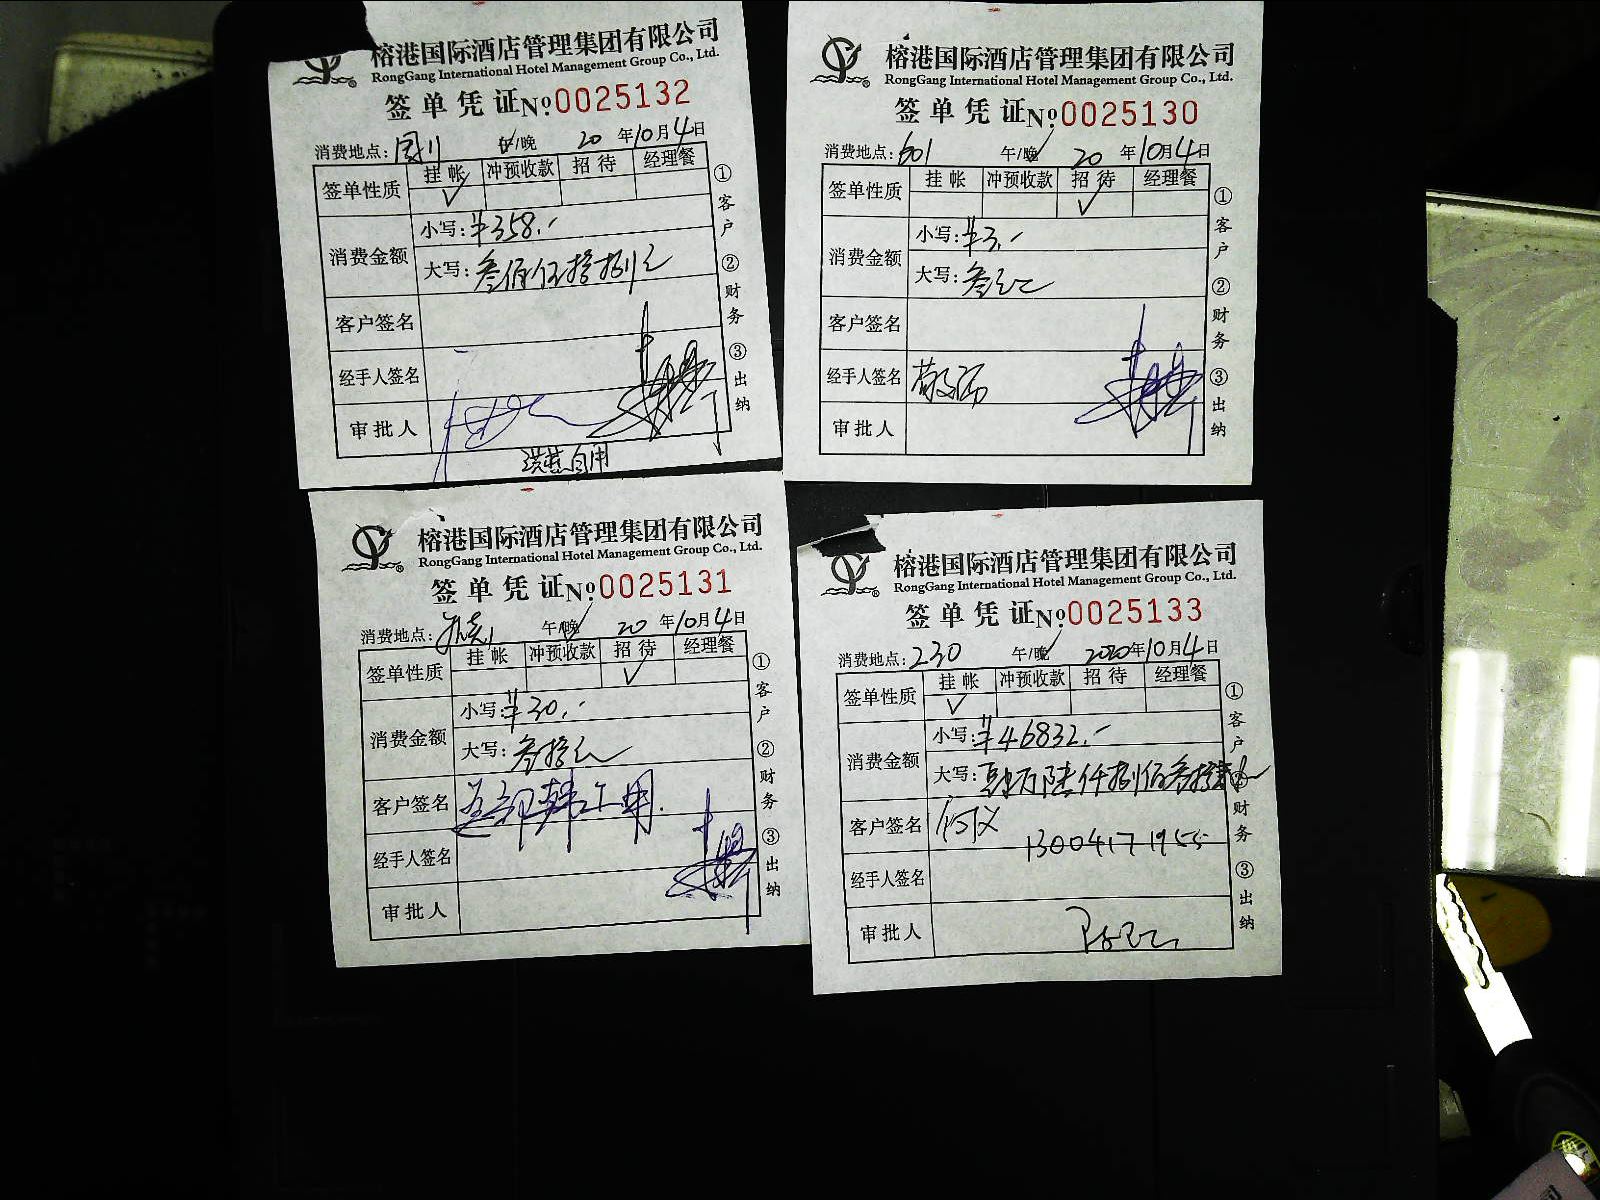 榕港国际酒店管理集团有限公司
RongGang International Hotel Management Group Co., Ltd.
签单凭证 №0025132
消费地点: 午/晚 20 年10月4日
签单性质 挂帐 冲预收款 招待 经理餐
✓
消费金额 小写:¥358.-
大写:叁佰伍拾捌元
客户签名
经手人签名
审批人
自用
①客户 ②财务 ③出纳
榕港国际酒店管理集团有限公司
RongGang International Hotel Management Group Co., Ltd.
签单凭证 №0025130
消费地点:601 午/晚 20 年10月4日
签单性质 挂帐 冲预收款 招待 经理餐
✓
消费金额 小写:¥3.-
大写:叁元
客户签名
经手人签名
审批人
①客户 ②财务 ③出纳
榕港国际酒店管理集团有限公司
RongGang International Hotel Management Group Co., Ltd.
签单凭证 №0025131
消费地点: 午/晚 20 年10月4日
签单性质 挂帐 冲预收款 招待 经理餐
✓
消费金额 小写:¥30.-
大写:叁拾元
客户签名
经手人签名
审批人
①客户 ②财务 ③出纳
榕港国际酒店管理集团有限公司
RongGang International Hotel Management Group Co., Ltd.
签单凭证 №0025133
消费地点:230 午/晚 2020年10月4日
签单性质 挂帐 冲预收款 招待 经理餐
✓
消费金额 小写:¥46832.-
大写:肆万陆仟捌佰叁拾贰元
客户签名 13004171955
经手人签名
审批人
①客户 ②财务 ③出纳